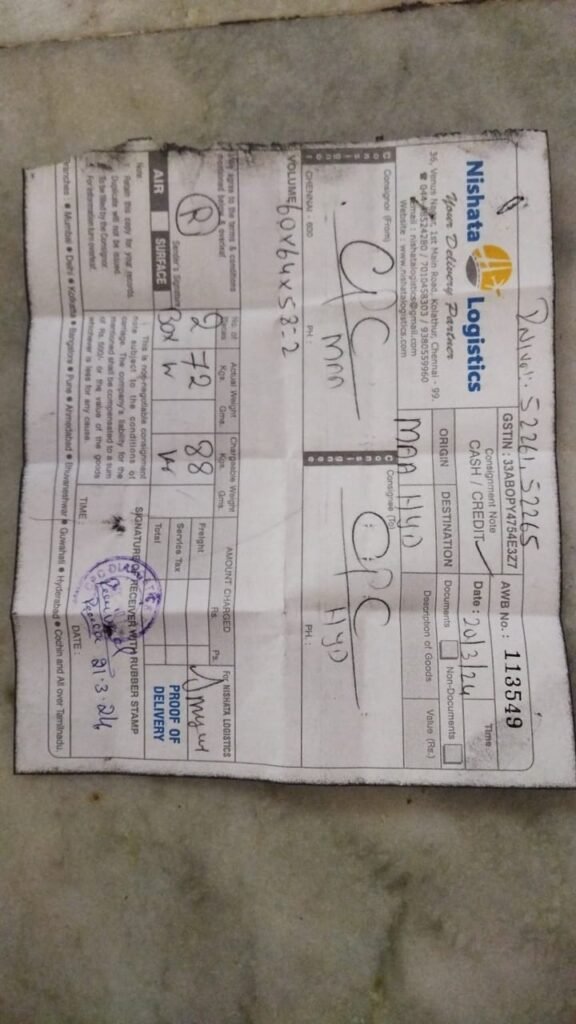 DNNo1: 52261, 52265
Nishata Logistics
Your Delivery Partner
36, Venus Nagar, 1st Main Road, Kolathur, Chennai - 99.
7010458303 / 9380559960
Email : nishatalogistics@gmail.com
Website : www.nishatalogistics.com
GSTIN : 33ABOPY4754E3Z7
AWB No.: 113549
Consignment Note
CASH / CREDIT
Date : 20/3/24
Time :
ORIGIN
DESTINATION
Documents
Non-Documents
MAA
HYD
Description of Goods
Value (Rs.)
Consignor
Consignor (From)
CPC
MAA
CHENNAI - 600
PH :
Consignee
Consignee (To)
CPC
HYD
PH. :
VOLUME 60x64x58-2
I/We agree to the terms & conditions
mentioned below & overleaf.
Sender's Signature
AIR
SURFACE
No. of
Pieces
2
Box
Actual Weight
Kgs. Gms.
72
W
Chargeable Weight
Kgs. Gms.
88
W
AMOUNT CHARGED
Rs. Ps.
Freight
Service Tax
Total
For NISHATA LOGISTICS
PROOF OF
DELIVERY
Note:
Retain this copy for your records.
Duplicate will not be issued
To be filled by the Consignor
For information turn overleaf.
This is non-negotiable consignment
note subject to the conditions of
carriage. The company's liability for the
mentioned shall be compensated to a sum
of Rs. 500/- or the value of the goods
whichever is less for any cause.
SIGNATURE OF RECEIVER WITH RUBBER STAMP
Received
21.3.24
TIME :
DATE :
Branches : Mumbai ● Delhi ● Kolkatta ● Bangalore ● Pune ● Ahmedabad ● Bhuvaneshwar ● Guwahati ● Hyderabad ● Cochin and All over Tamilnadu.